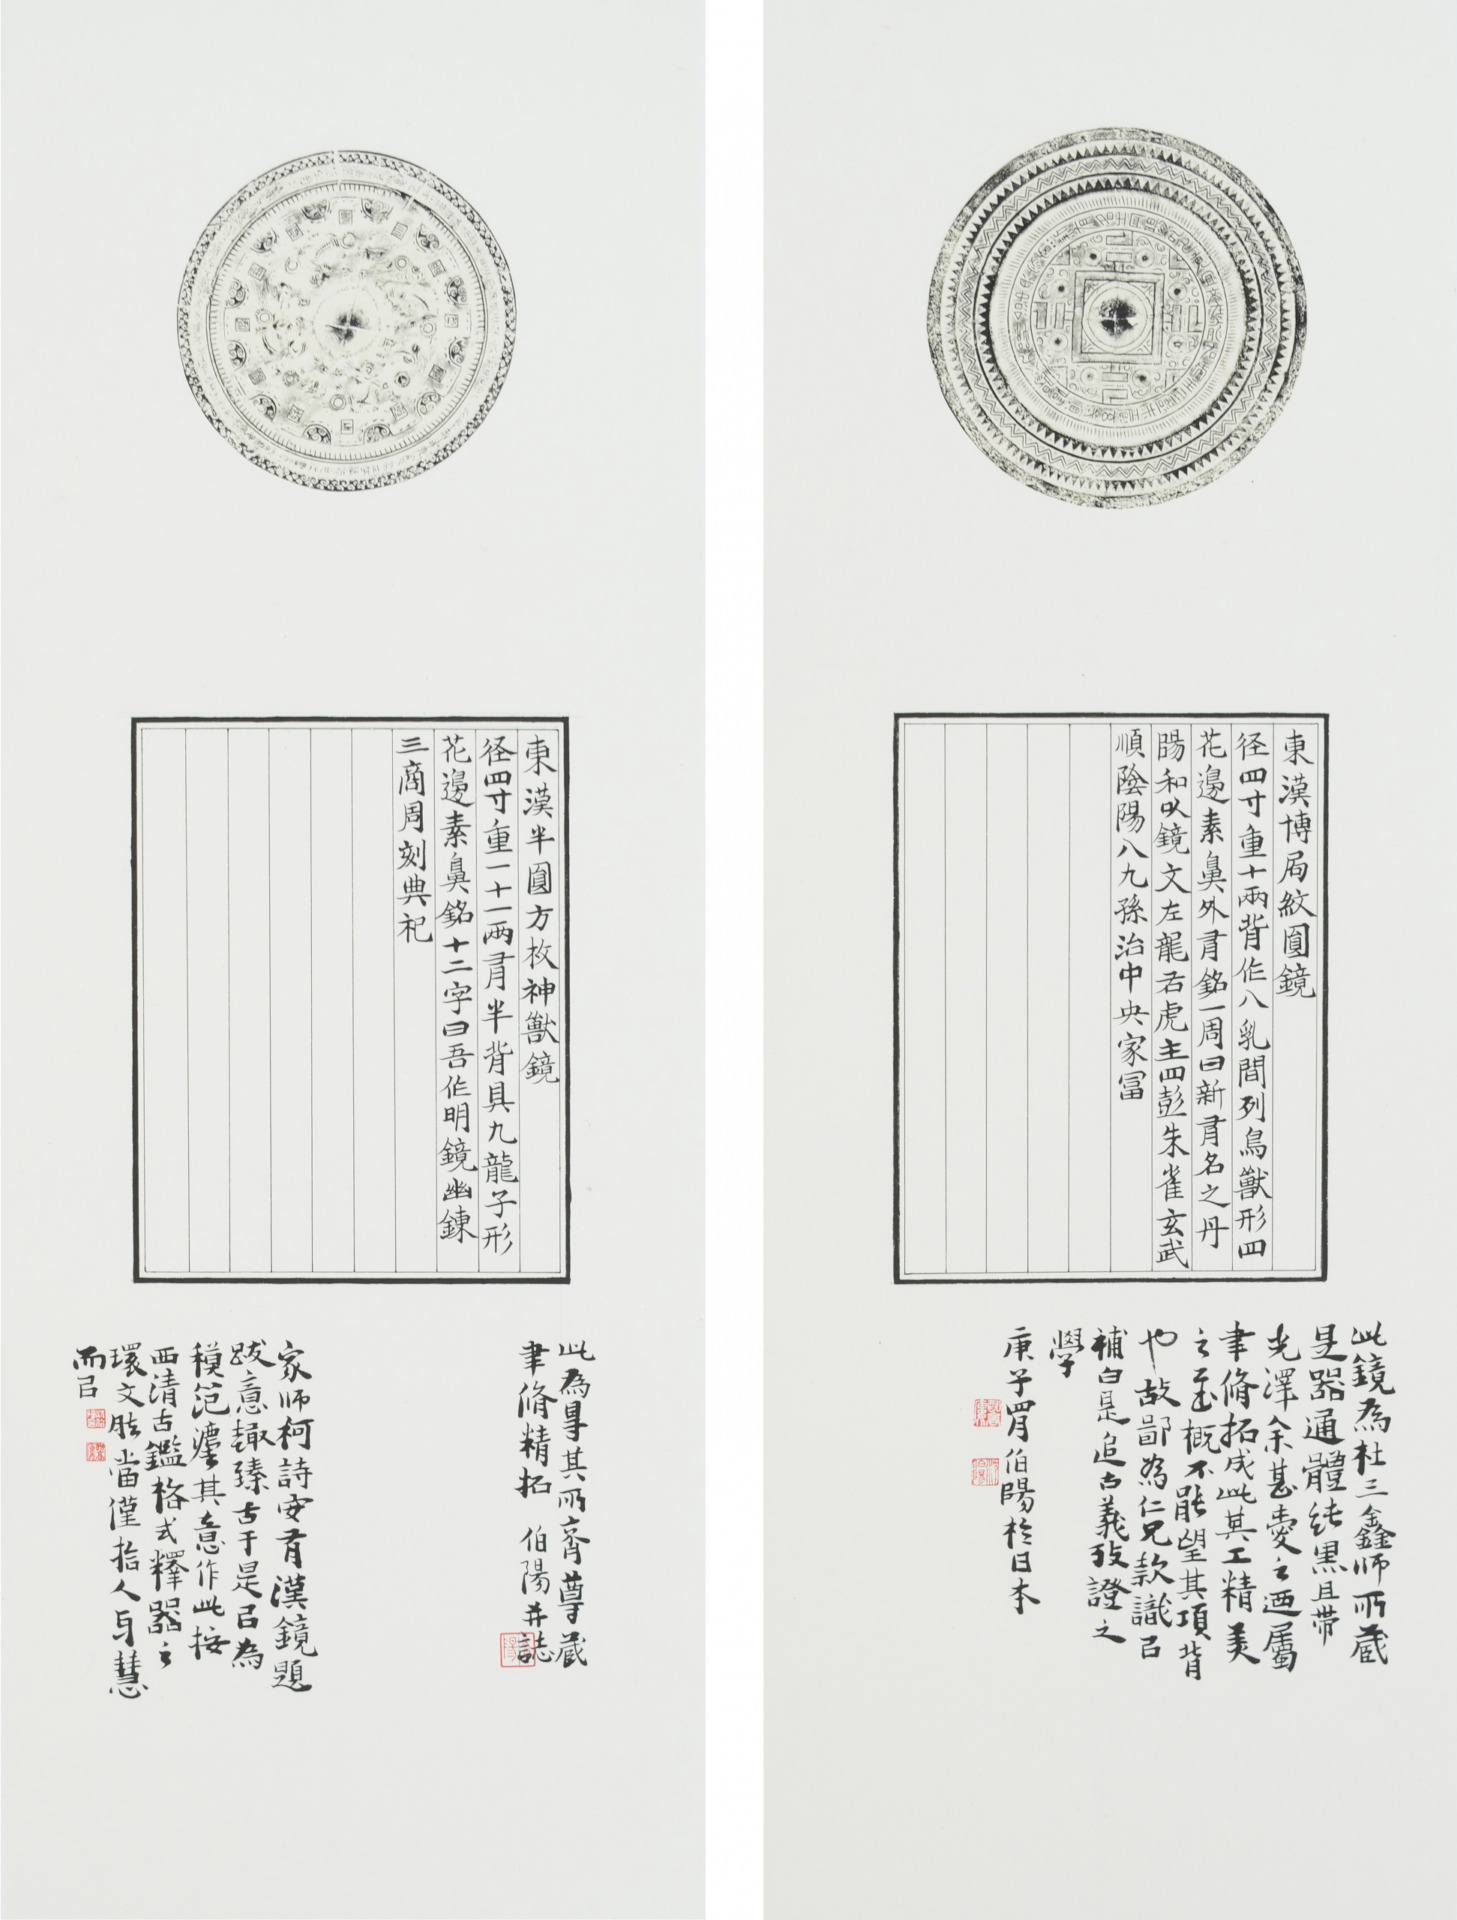 東漢博局紋圓鏡
径四寸重十兩背作八乳間列鳥獸形四
花邊素鼻外有銘一周曰新有名之丹
陽和以鏡文左龍右虎主四彭朱雀玄武
順陰陽八九孫治中央家冨
此鏡為杜三鑫師所藏
是器通體純黑且帶
光澤余甚愛之迺屬
聿脩拓成此其工精美
之至概不能望其項背
也故鄙為仁兄款識已
補白是追古義攷證之
學
庚子四月伯陽於日本
東漢半圓方枚神獸鏡
径四寸重一十一兩有半背具九龍子形
花邊素鼻銘十二字曰吾作明鏡幽鍊
三商周刻典祀
此為其所齊尊藏
聿脩精拓 伯陽并誌
家師柯詩安有漢鏡題
跋意趣臻古于是已為
模范其意作此按
西清古鑑格式釋器之
環文脁當僅拾人与慧
而已